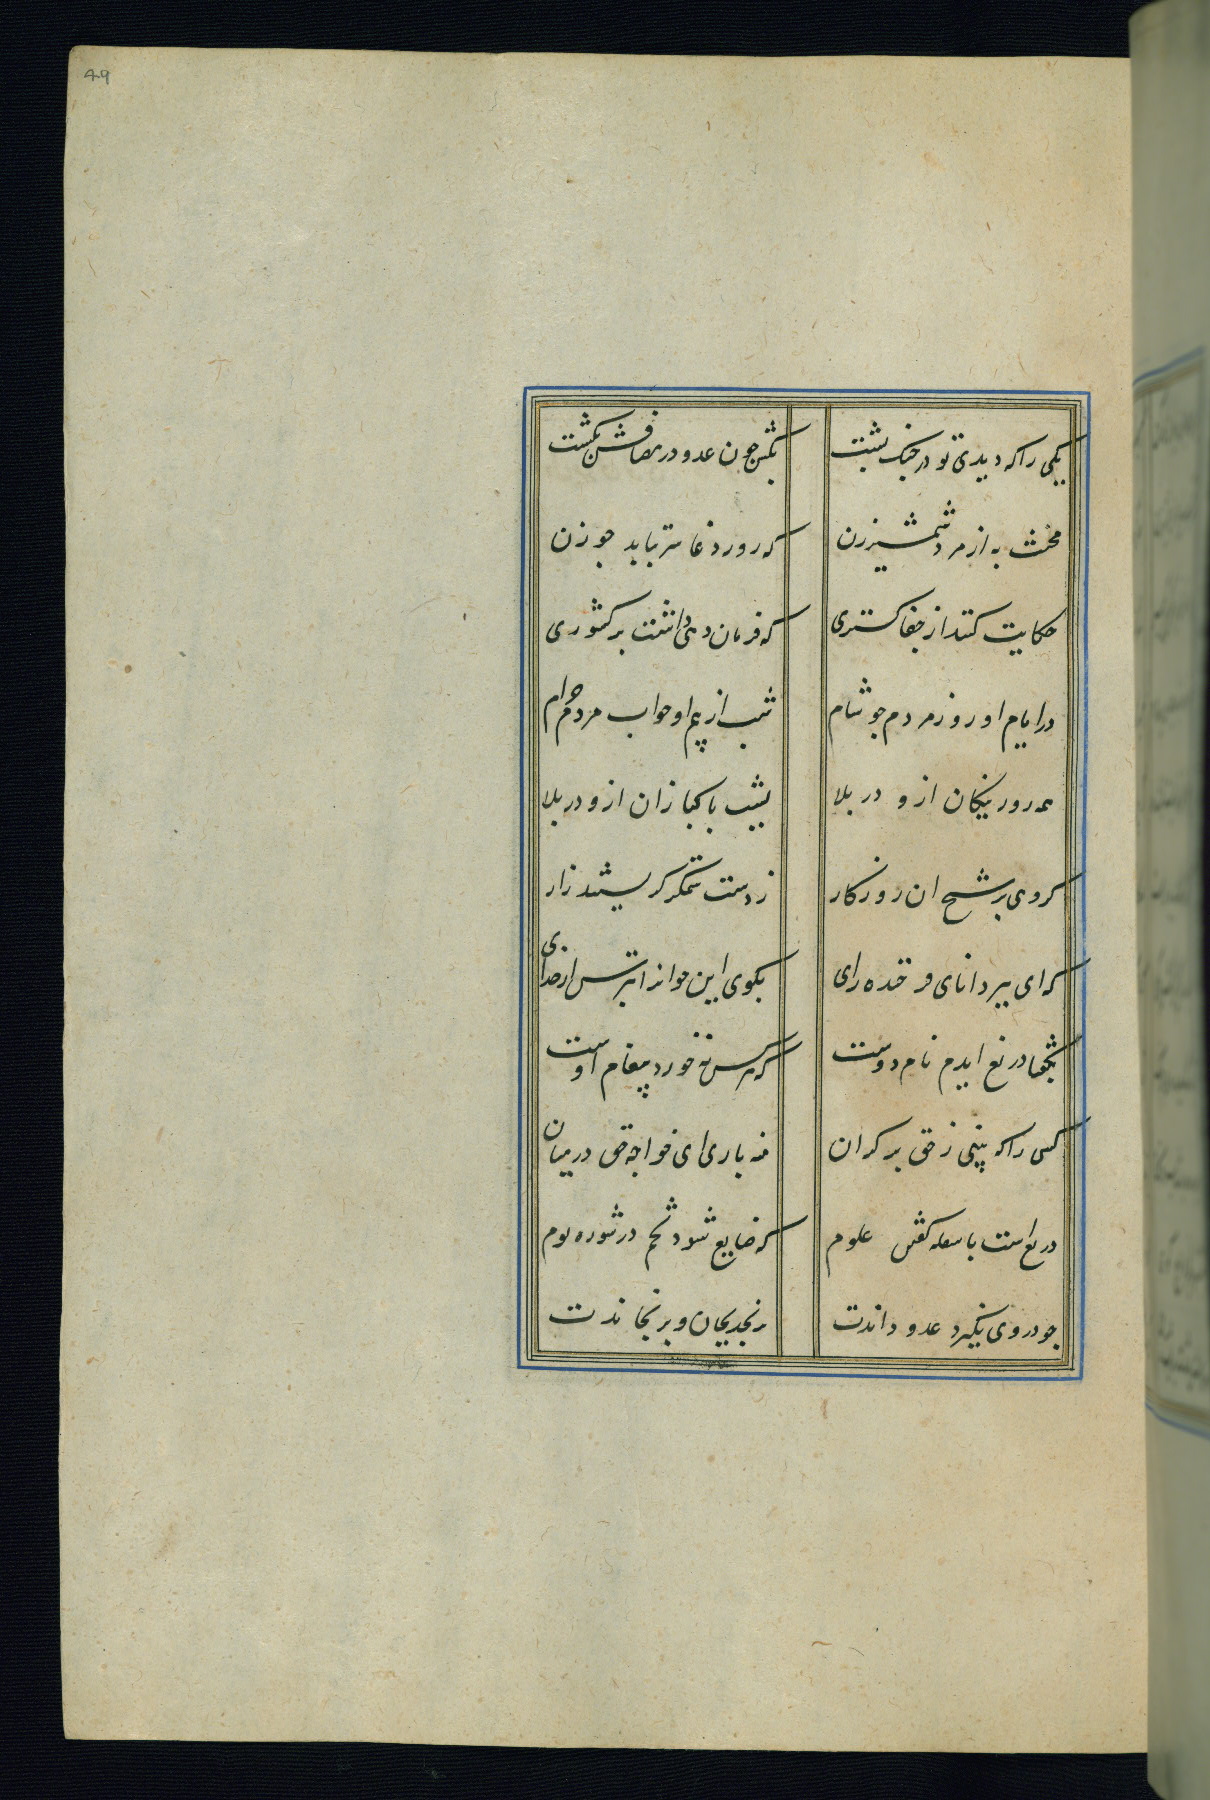 49
یکی را که دیدی تو در جنک پشت
بکش جون عدو در مصافش نکشت
مخنث به از مرد شمشیرزن
که روز وغا سر بتابد جو زن
حکایت کنند از جفا کستری
که فرمان دهی داشت بر کشوری
در ایام او روز مردم جو شام
شب از بیم او خواب مردم حرام
همه روز نیکان ازو در بلا
بشب باکبازان ازو در بلا
کروهی بر شیخ ان روزکار
ز دست ستمکر کریستند زار
که ای پیر دانای فرخنده رای
بکوی این جوانرا بترس از خدای
بکفتا دریغ ایدم نام دوست
که هر کس نه در خورد پیغام اوست
کسی را که بینی ز حق بر کران
منه با وی ای خواجه حق در میان
دریغ است با سفله کفتن علوم
که ضایع شود تخم در شوره بوم
جو در وی نکیرد عدو داندت
برنجد بجان و برنجاندت